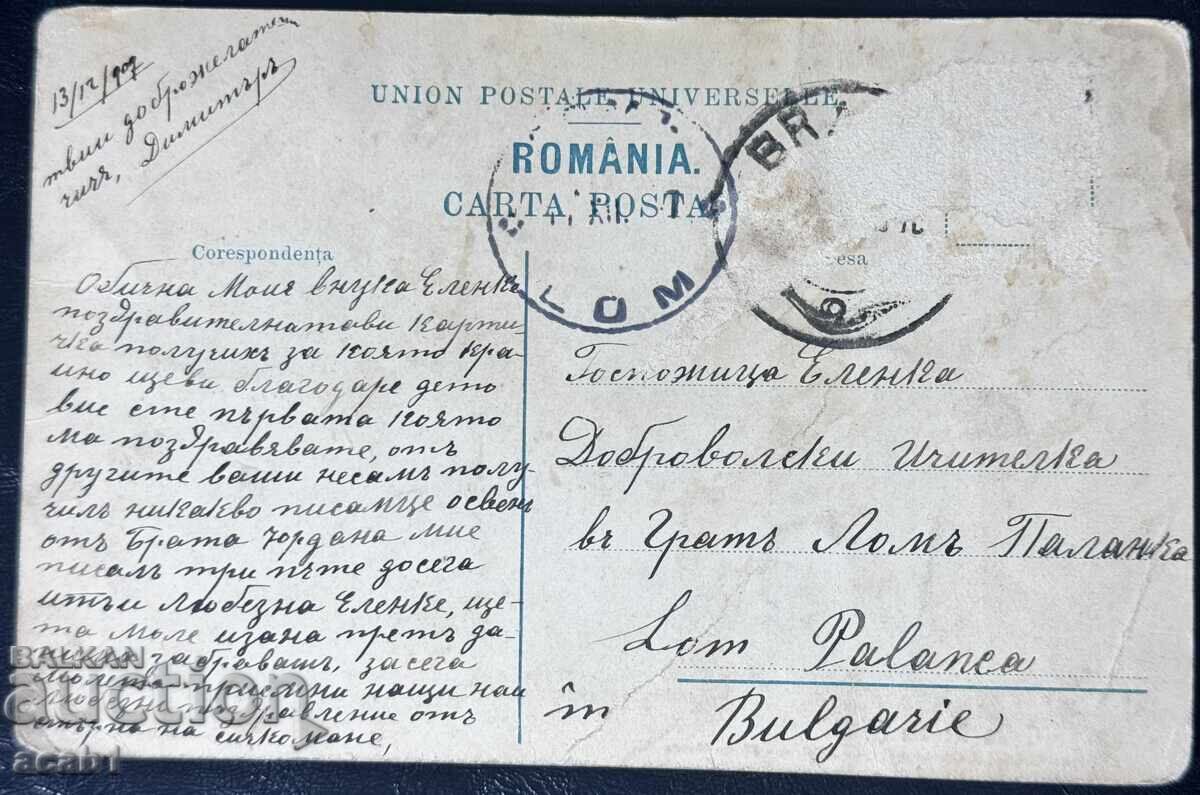 13/12/907
твии доброжелател
чичъ, Димитъръ
UNION POSTALE UNIVERSELLE
ROMÂNIA.
CARTA POSTA
Corespondența
esa
LOM
XII. 7
BR
Обична Моие внука Еленке
поздравителнатави карти-
чка получихъ за която кра-
ино щеви благодаре дето
вие сте първата която
ма поздравявате, отъ
другите ваши несамъ полу-
чилъ никакво писмце освенъ
отъ Брата Юрдана мие
писалъ три пъте досега
итъи Любезна Еленке, ще-
та моле изана претъ да-
забравашъ, засега
приемни нащи наи
отъ
на сичкомане,
Госпожица Еленка
Доброволски Учителка
въ Гратъ Ломъ Паланка
Lom Palanca
în Bulgarie
BALKAN
auction
acab1